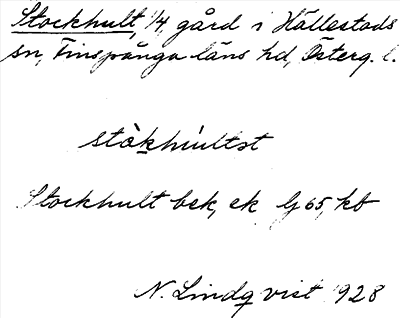 Stockhult, 1/4, gård i Hällestads
sn, Finspånga läns hd, Österg. l.
stòkhúltst
Stockhult bek, ek G 65, kb
N. Lindqvist 1928